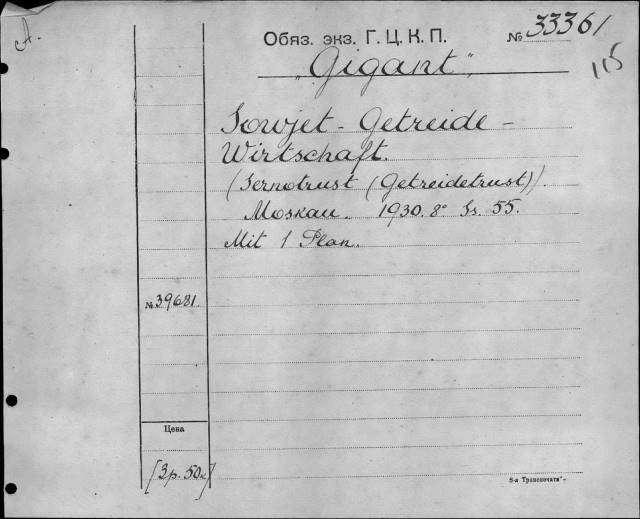 A.
Обяз. экз. Г. Ц. К. П. № 33361
"Gigant"
115
Sowjet - Getreide -
Wirtschaft.
(Sernotrust (Getreidetrust)).
Moskau. 1930. 8° Ss. 55.
Mit 1 Plan.
№ 39681.
Цена
[3 р. 50к]
5-я Транспечати"-